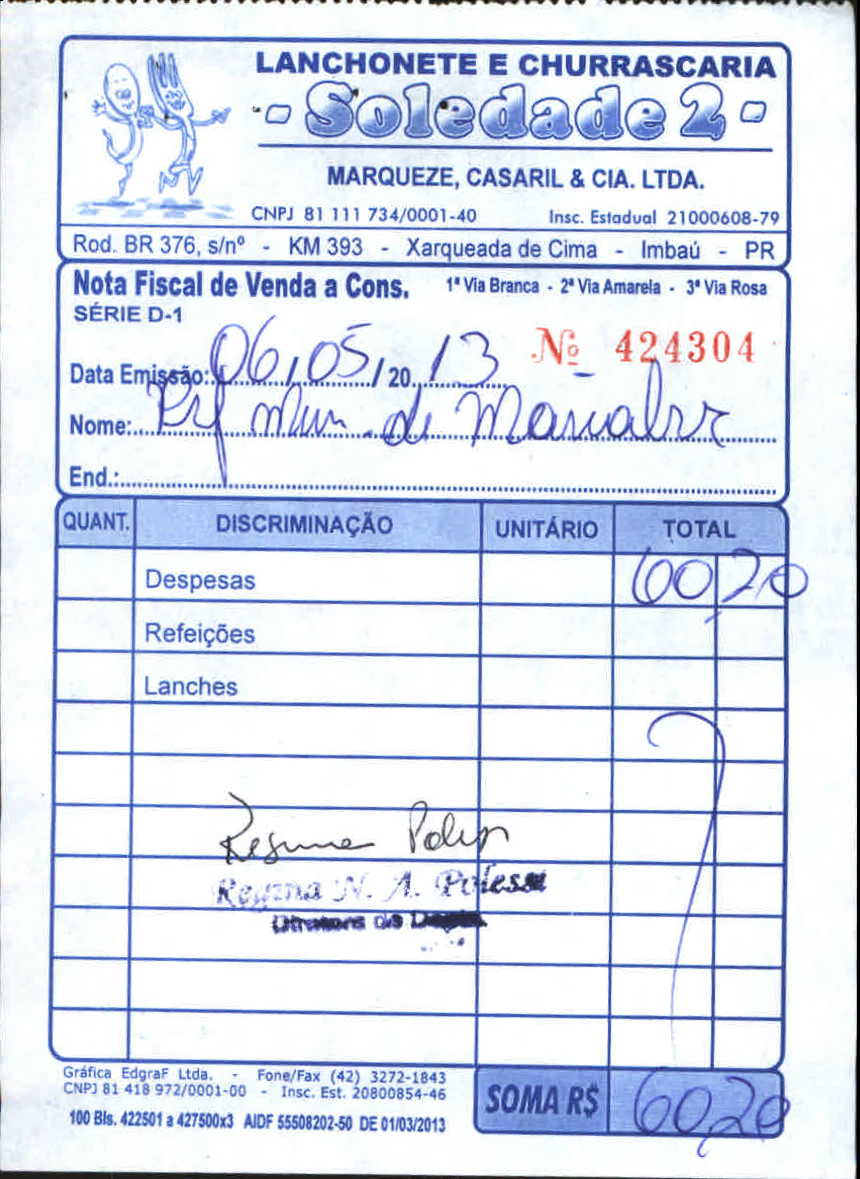 LANCHONETE E CHURRASCARIA
- Soledade 2 -
MARQUEZE, CASARIL & CIA. LTDA.
CNPJ 81 111 734/0001-40 Insc. Estadual 21000608-79
Rod. BR 376, s/nº - KM 393 - Xarqueada de Cima - Imbaú - PR
Nota Fiscal de Venda a Cons. 1ª Via Branca - 2ª Via Amarela - 3ª Via Rosa
SÉRIE D-1
Nº 424304
Data Emissão: 06/05/2013
Nome: Prf Mun. de
End.:
QUANT. DISCRIMINAÇÃO UNITÁRIO TOTAL
Despesas 60,20
Refeições
Lanches
Regina N. A. Polessi
Gráfica EdgraF Ltda. - Fone/Fax (42) 3272-1843
CNPJ 81 418 972/0001-00 - Insc. Est. 20800854-46
100 Bls. 422501 a 427500x3 AIDF 55508202-50 DE 01/03/2013
SOMA R$ 60,20